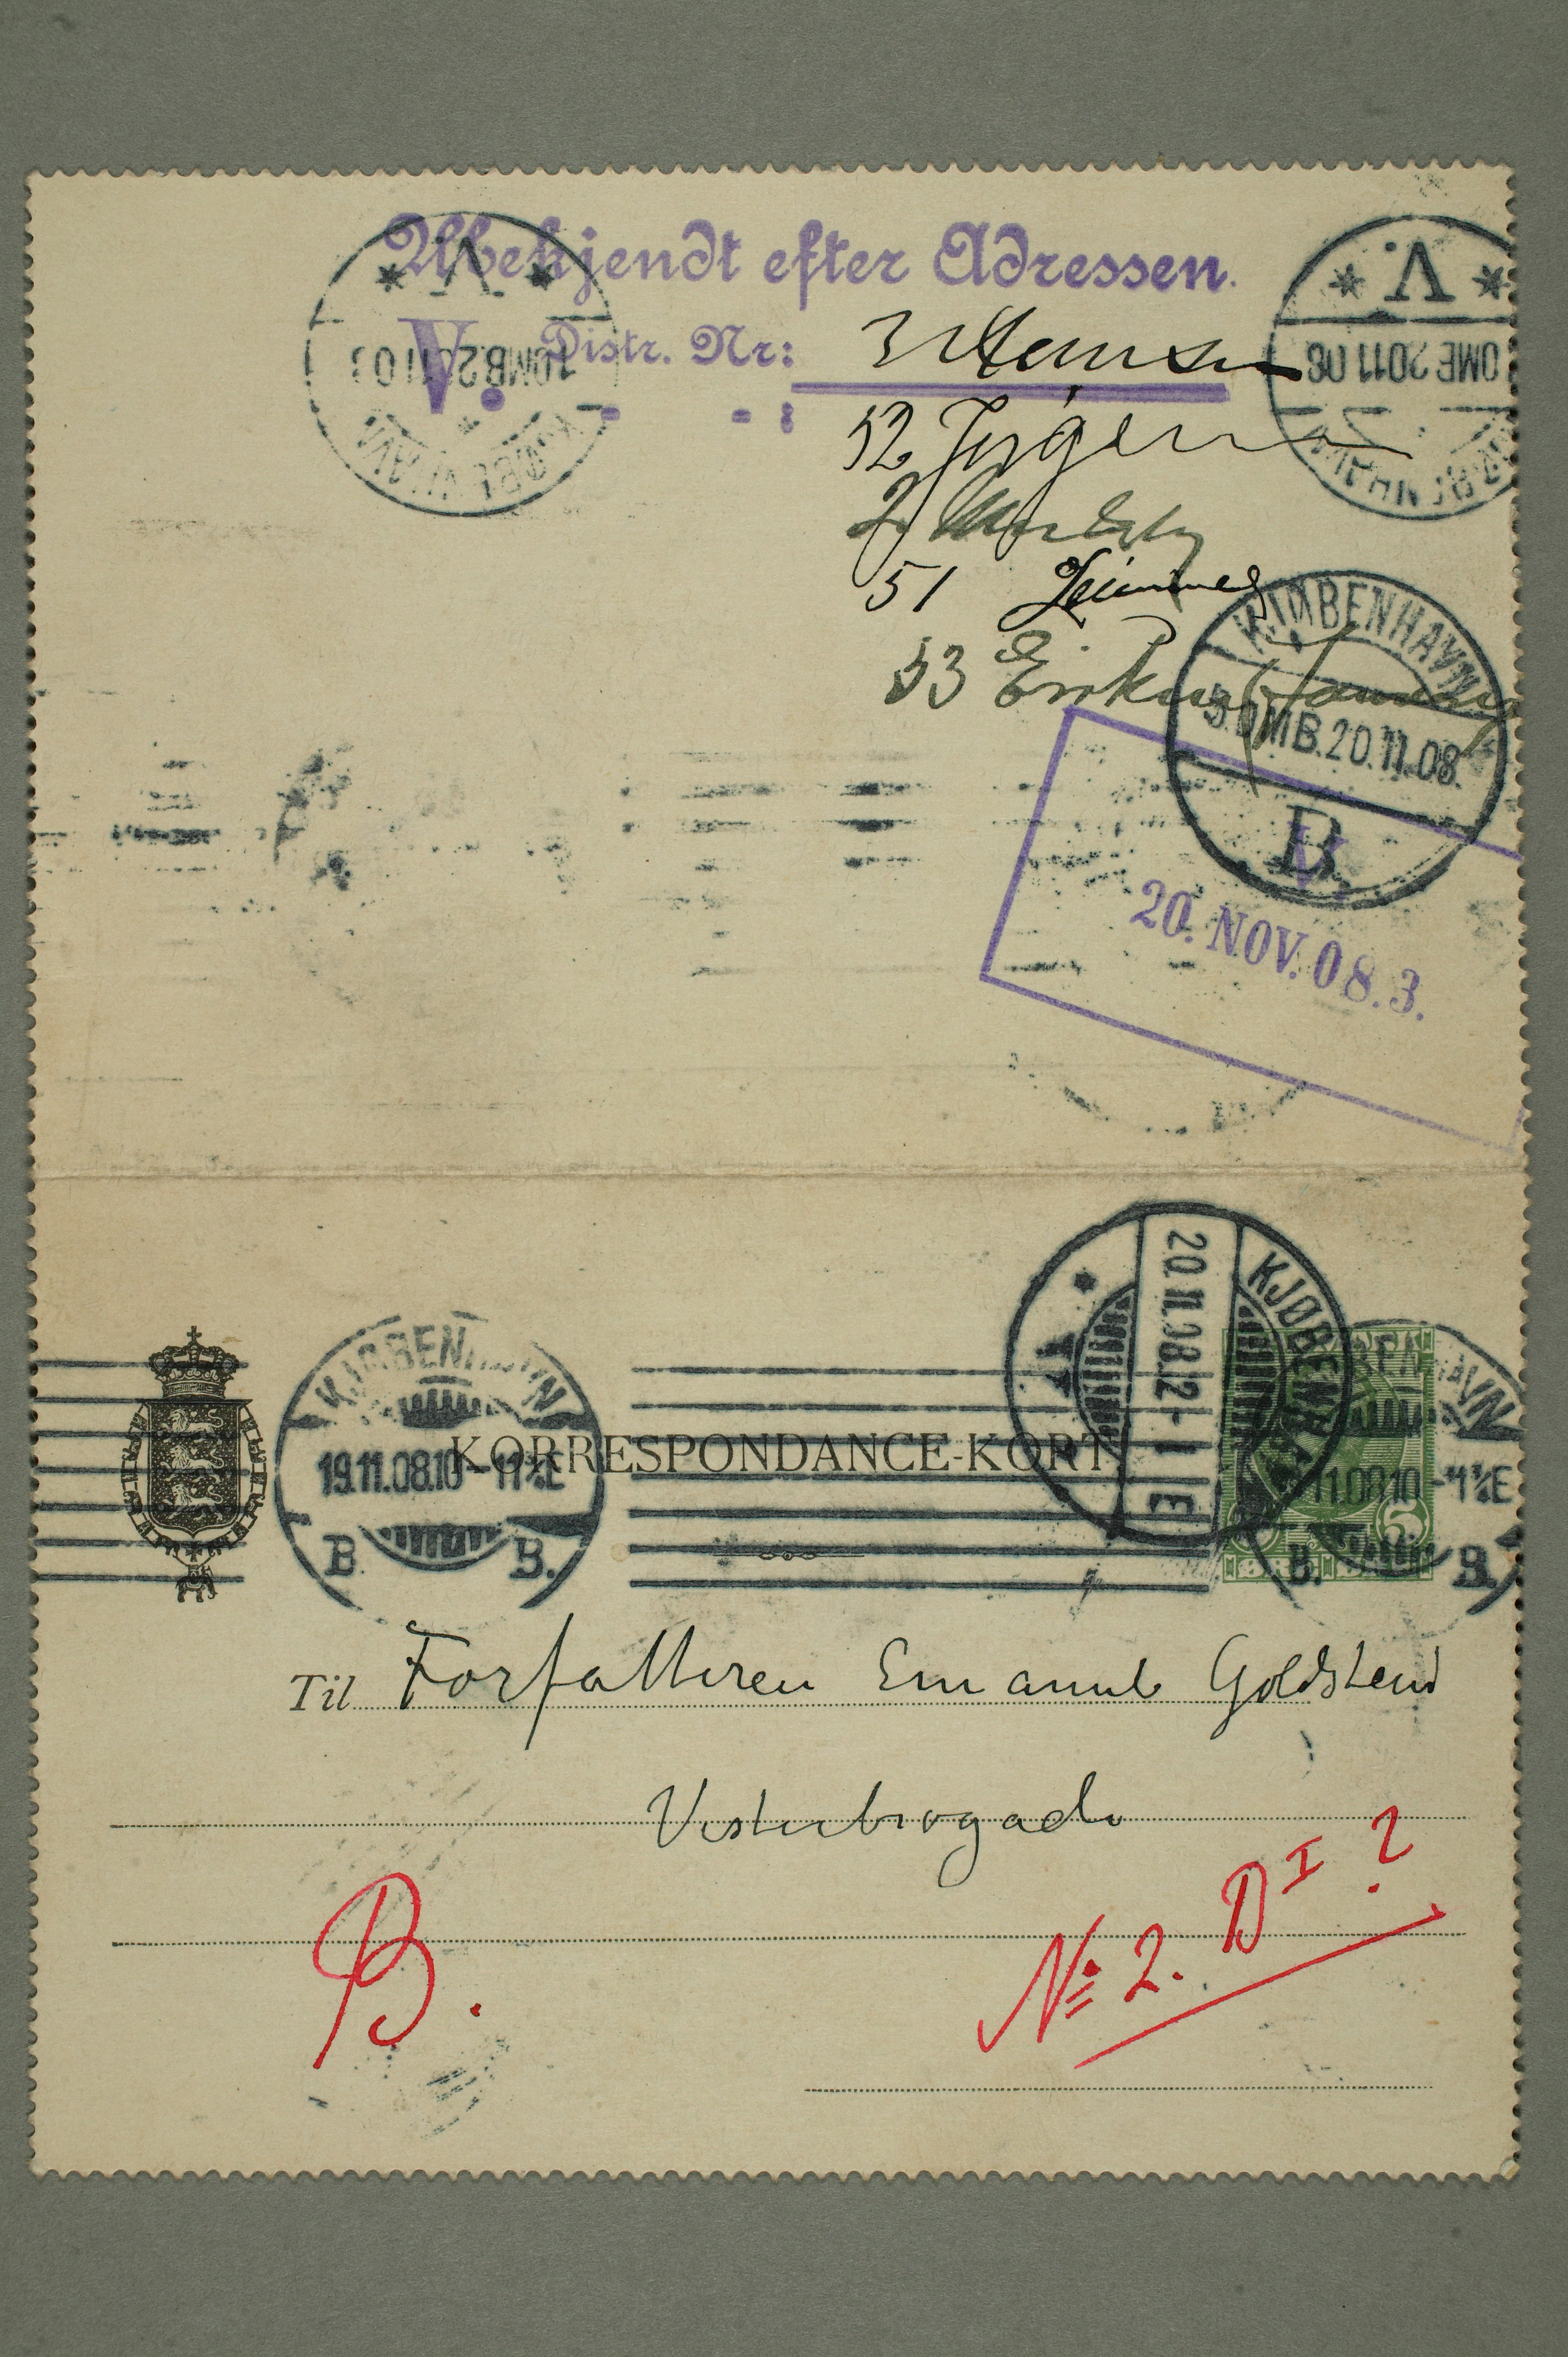 Ubekjendt efter Adressen.
V. Distr. Nr: 3 Hansen
52
2
51
53
KJØBENHAVN V. 10MB.20 11 08
KJØBENHAVN V. OMB 20 11 08
KJØBENHAVN 5.OMB.20.11.08. B.
V.
20. NOV. 08. 3.
KJØBENHAVN 20.11.08.12-1 E
KJØBENHAVN 19.11.08.10-11½E B. B.
KJØBENHAVN 11.08.10-11½E B. B.
KORRESPONDANCE-KORT
5 5
ØRE
Til Forfatteren Emanuel Goldstein
Vesterbrogade
B.
No 2. D I ?